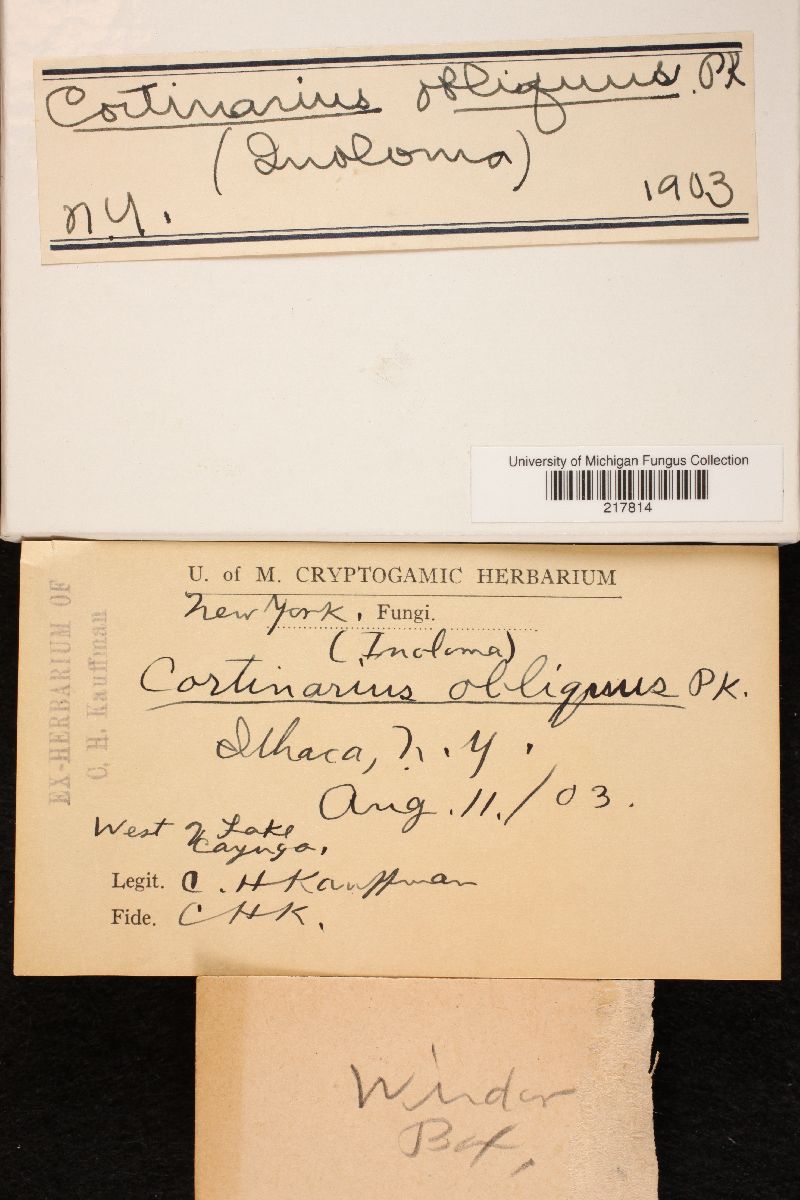 Cortinarius obliquus. PK
(Inoloma)
N.Y. 1903
University of Michigan Fungus Collection
217814
EX-HERBARIUM OF
C. H. Kauffman
U. of M. CRYPTOGAMIC HERBARIUM
New York, Fungi.
(Inoloma)
Cortinarius obliquus PK.
Ithaca, N.Y.
Aug. 11./03.
West of Lake
Cayuga.
Legit. C. H Kauffman
Fide. C H K.
Box,